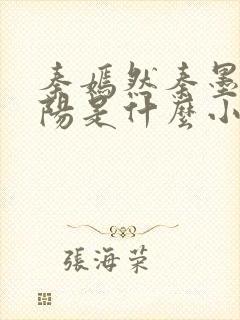 秦嫣然秦墨
陽是什麼小
張海荣